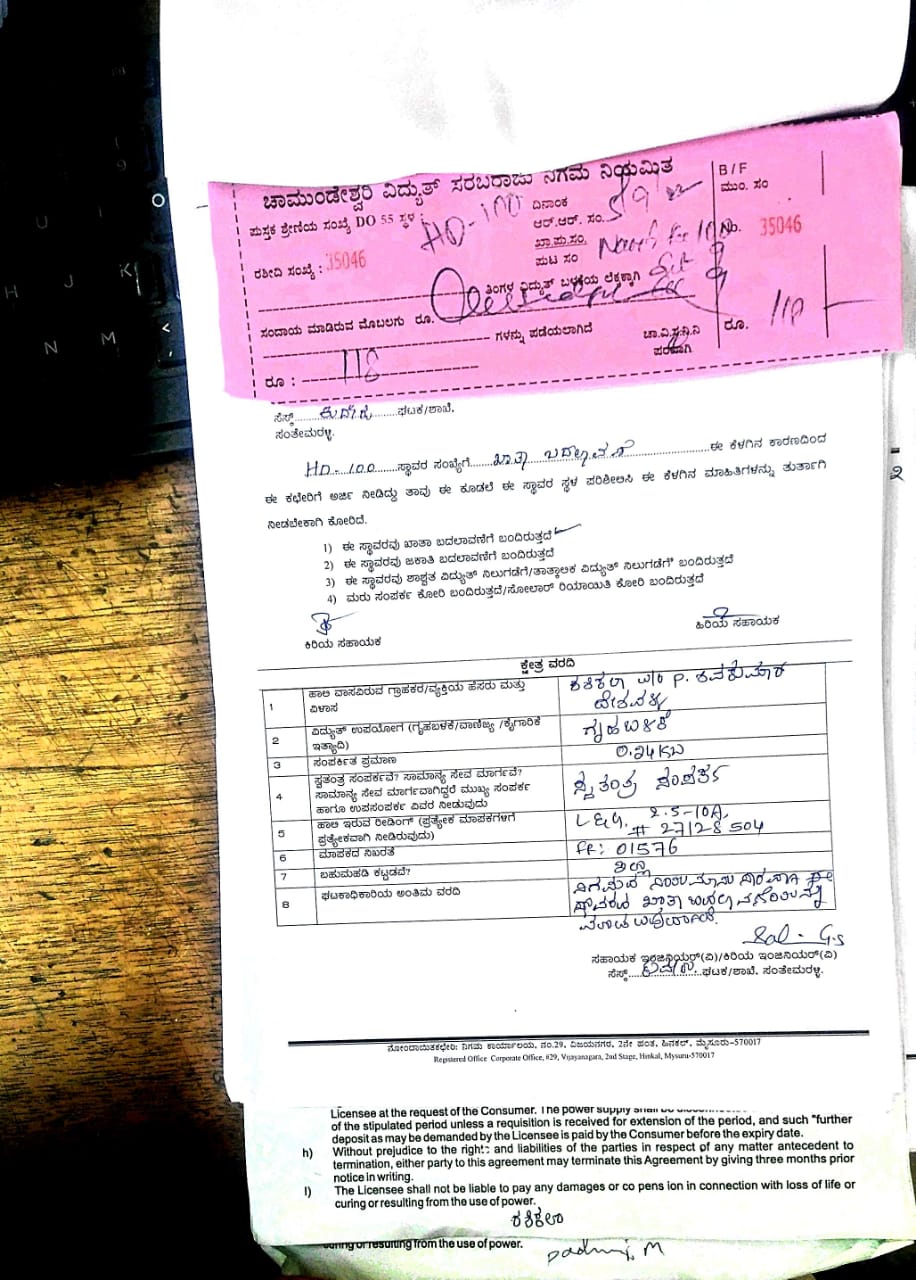 ಚಾಮುಂಡೇಶ್ವರಿ ವಿದ್ಯುತ್ ಸರಬರಾಜು ನಿಗಮ ನಿಯಮಿತ
ಪುಸ್ತಕ ಶ್ರೇಣಿಯ ಸಂಖ್ಯೆ DO 55 ಸ್ಥಳ : HD-100
ದಿನಾಂಕ 5/9/22
ಆರ್.ಆರ್. ಸಂ.
ರಶೀದಿ ಸಂಖ್ಯೆ : 35046
ಖಾ.ಪು.ಸಂ.
ಪುಟ ಸಂ
ತಿಂಗಳ ವಿದ್ಯುತ್ ಬಳಕೆಯ ಲೆಕ್ಕಕ್ಕಾಗಿ
ಸಂದಾಯ ಮಾಡಿರುವ ಮೊಬಲಗು ರೂ.
ಗಳನ್ನು ಪಡೆಯಲಾಗಿದೆ
ಚಾ.ವಿ.ಸ.ನಿ.ನಿ
ಪರವಾಗಿ
ರೂ : 118
B / F
ಮುಂ. ಸಂ
No. 35046
ರೂ. 118
ಸೆಸ್ಕ್ ಘಟಕ/ಶಾಖೆ,
ಸಂತೇಮರಳ್ಳಿ.
HD-100 ಸ್ಥಾವರ ಸಂಖ್ಯೆಗೆ ಖಾತಾ ಬದಲಾವಣೆ ಈ ಕೆಳಗಿನ ಕಾರಣದಿಂದ
ಈ ಕಛೇರಿಗೆ ಅರ್ಜಿ ನೀಡಿದ್ದು ತಾವು ಈ ಕೂಡಲೆ ಈ ಸ್ಥಾವರ ಸ್ಥಳ ಪರಿಶೀಲಿಸಿ ಈ ಕೆಳಗಿನ ಮಾಹಿತಿಗಳನ್ನು ತುರ್ತಾಗಿ
ನೀಡಬೇಕಾಗಿ ಕೋರಿದೆ.
1) ಈ ಸ್ಥಾವರವು ಖಾತಾ ಬದಲಾವಣೆಗೆ ಬಂದಿರುತ್ತದೆ
2) ಈ ಸ್ಥಾವರವು ಜಕಾತಿ ಬದಲಾವಣೆಗೆ ಬಂದಿರುತ್ತದೆ
3) ಈ ಸ್ಥಾವರವು ಶಾಶ್ವತ ವಿದ್ಯುತ್ ನಿಲುಗಡೆಗೆ/ತಾತ್ಕಾಲಿಕ ವಿದ್ಯುತ್ ನಿಲುಗಡೆಗೆ ಬಂದಿರುತ್ತದೆ
4) ಮರು ಸಂಪರ್ಕ ಕೋರಿ ಬಂದಿರುತ್ತದೆ/ಸೋಲಾರ್ ರಿಯಾಯಿತಿ ಕೋರಿ ಬಂದಿರುತ್ತದೆ
ಕಿರಿಯ ಸಹಾಯಕ
ಹಿರಿಯ ಸಹಾಯಕ
ಕ್ಷೇತ್ರ ವರದಿ
1 ಹಾಲಿ ವಾಸವಿರುವ ಗ್ರಾಹಕರ/ವ್ಯಕ್ತಿಯ ಹೆಸರು ಮತ್ತು
ವಿಳಾಸ
ಶಶಿಕಲಾ W/o P. ಶಿವಕುಮಾರ
2 ವಿದ್ಯುತ್ ಉಪಯೋಗ (ಗೃಹಬಳಕೆ/ವಾಣಿಜ್ಯ /ಕೈಗಾರಿಕೆ
ಇತ್ಯಾದಿ)
ಗೃಹಬಳಕೆ
3 ಸಂಪರ್ಕಿತ ಪ್ರಮಾಣ 0.24KW
4 ಸ್ವತಂತ್ರ ಸಂಪರ್ಕವೆ? ಸಾಮಾನ್ಯ ಸೇವ ಮಾರ್ಗವೆ?
ಸಾಮಾನ್ಯ ಸೇವ ಮಾರ್ಗವಾಗಿದ್ದರೆ ಮುಖ್ಯ ಸಂಪರ್ಕ
ಹಾಗೂ ಉಪಸಂಪರ್ಕ ವಿವರ ನೀಡುವುದು
ಸ್ವತಂತ್ರ ಸಂಪರ್ಕ
5 ಹಾಲಿ ಇರುವ ರೀಡಿಂಗ್ (ಪ್ರತ್ಯೇಕ ಮಾಪಕಗಳಿಗೆ
ಪ್ರತ್ಯೇಕವಾಗಿ ನೀಡಿರುವುದು)
L&G. 2.5-10A,
# 27128504
6 ಮಾಪಕದ ನಿಖರತೆ FR: 01576
7 ಬಹುಮಹಡಿ ಕಟ್ಟಡವೆ? ಇಲ್ಲ
8 ಘಟಕಾಧಿಕಾರಿಯ ಅಂತಿಮ ವರದಿ
ನಿಗಮದ ನಿಯಮಾನುಸಾರವಾಗಿ ಈ
ಸ್ಥಾವರದ ಖಾತಾ ಬದಲಾವಣೆಯನ್ನು
ಮಾಡಬಹುದಾಗಿದೆ.
Sd/- G.S
ಸಹಾಯಕ ಇಂಜಿನಿಯರ್(ವಿ)/ಕಿರಿಯ ಇಂಜಿನಿಯರ್(ವಿ)
ಸೆಸ್ಕ್ ಘಟಕ/ಶಾಖೆ, ಸಂತೇಮರಳ್ಳಿ.
ನೋಂದಾಯಿತಕಛೇರಿ: ನಿಗಮ ಕಾರ್ಯಾಲಯ, ನಂ.29, ವಿಜಯನಗರ, 2ನೇ ಹಂತ, ಹಿನಕಲ್, ಮೈಸೂರು-570017
Registered Office Corporate Office, #29, Vijayanagara, 2nd Stage, Hinkal, Mysuru-570017
Licensee at the request of the Consumer. The power supply shall be
of the stipulated period unless a requisition is received for extension of the period, and such "further
deposit as may be demanded by the Licensee is paid by the Consumer before the expiry date.
h) Without prejudice to the rights and liabilities of the parties in respect of any matter antecedent to
termination, either party to this agreement may terminate this Agreement by giving three months prior
notice in writing.
I) The Licensee shall not be liable to pay any damages or co pens ion in connection with loss of life or
curing or resulting from the use of power.
ಶಶಿಕಲಾ
curing or resulting from the use of power.